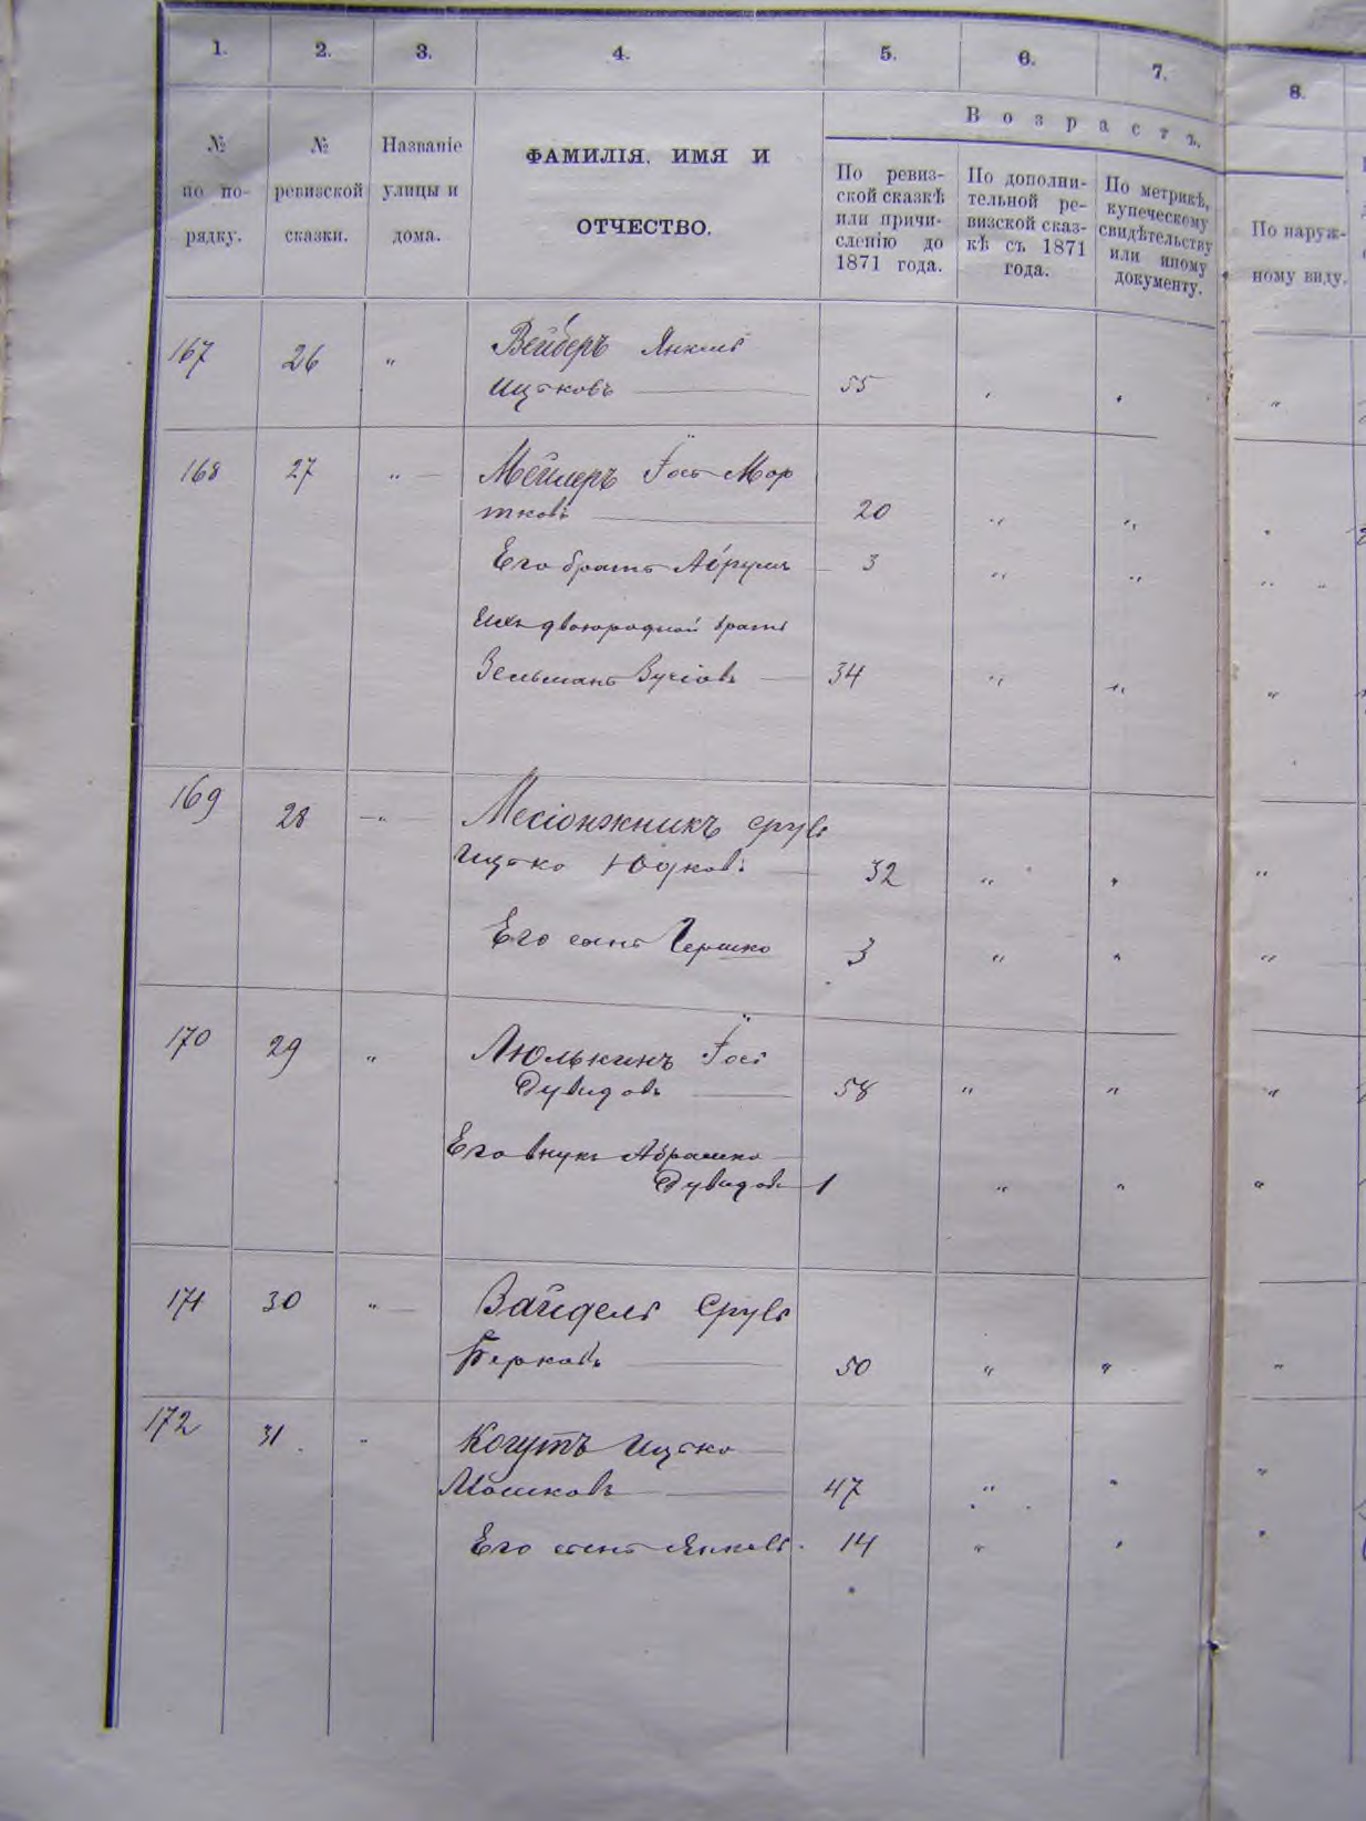 1. 2. 3. 4. 5. 6. 7. 8.
№ по по-рядку.
№ ревизской сказки.
Названіе улицы и дома.
ФАМИЛІЯ, ИМЯ И
ОТЧЕСТВО.
Возрастъ.
По ревиз-
ской сказкѣ
или причи-
сленію до
1871 года.
По дополни-
тельной ре-
визской сказ-
кѣ съ 1871
года.
По метрикѣ,
купеческому
свидѣтельству
или иному
документу.
По наруж-
ному виду.
167 26 " Вейберъ Янкель
Ицковъ 55 " " "
168 27 " Мейлеръ Іось Мор
тковъ 20 " " "
Его братъ Абрумъ 3 " " " "
Ихъ двоюродной братъ
Зельманъ Вучіовъ 34 " " "
169 28 " Месіонжникъ Сруль
Ицко Юдковъ 32 " " "
Его сынъ Гершко 3 " " "
170 29 " Люлькинъ Іось
Дувидовъ 58 " " "
Его внукъ Абрашко
Дувидовъ 1 " " "
171 30 " Зайдель Сруль
Берковъ 50 " " "
172 31 " Когутъ Ицко
Мошковъ 47 " " "
Его сынъ Янкель 14 " " "